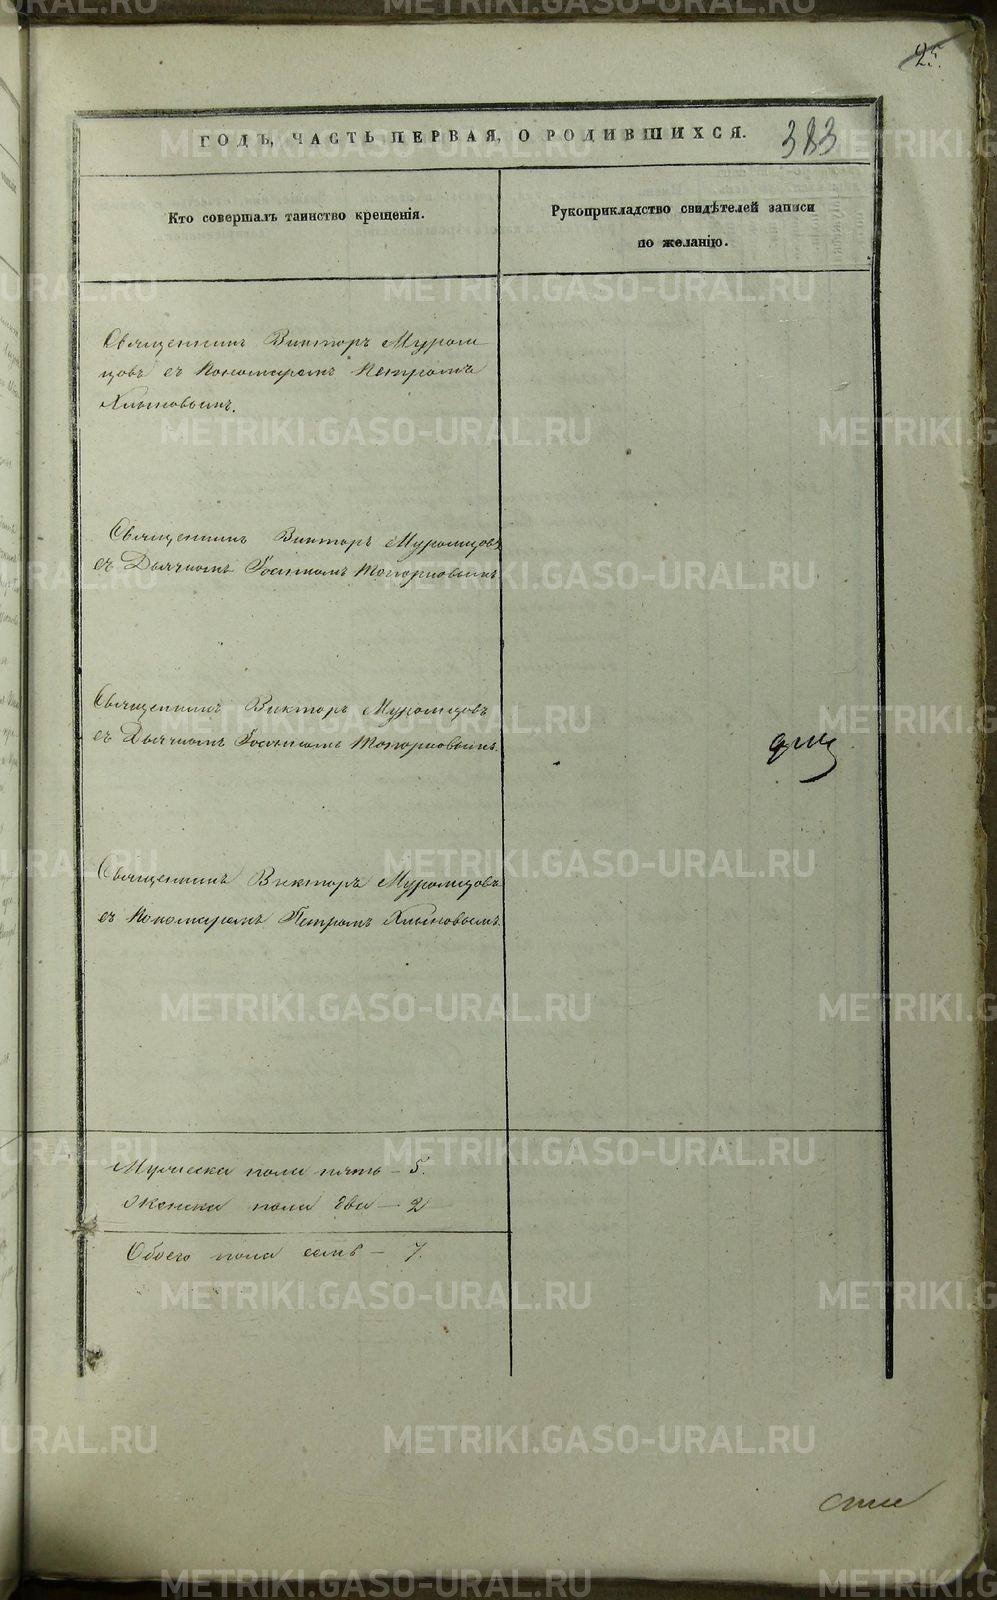 25.
ГОДЪ, ЧАСТЬ ПЕРВАЯ, О РОДИВШИХСЯ.
383
Кто совершалъ таинство крещенія.
Рукоприкладство свидѣтелей записи
по желанію.
Священникъ Викторъ Муром-
цовъ съ Пономаремъ Петромъ
Хлыновымъ.
Священникъ Викторъ Муромцовъ
съ Дьячкомъ Топорковымъ
Священникъ Викторъ Муромцовъ
съ Дьячкомъ Топорковымъ.
Священникъ Викторъ Муромцовъ
съ Пономаремъ Петромъ Хлыновымъ.
Мужеска пола пять – 5.
Женска пола два – 2
Обоего пола семь – 7.
METRIKI.GASO-URAL.RU